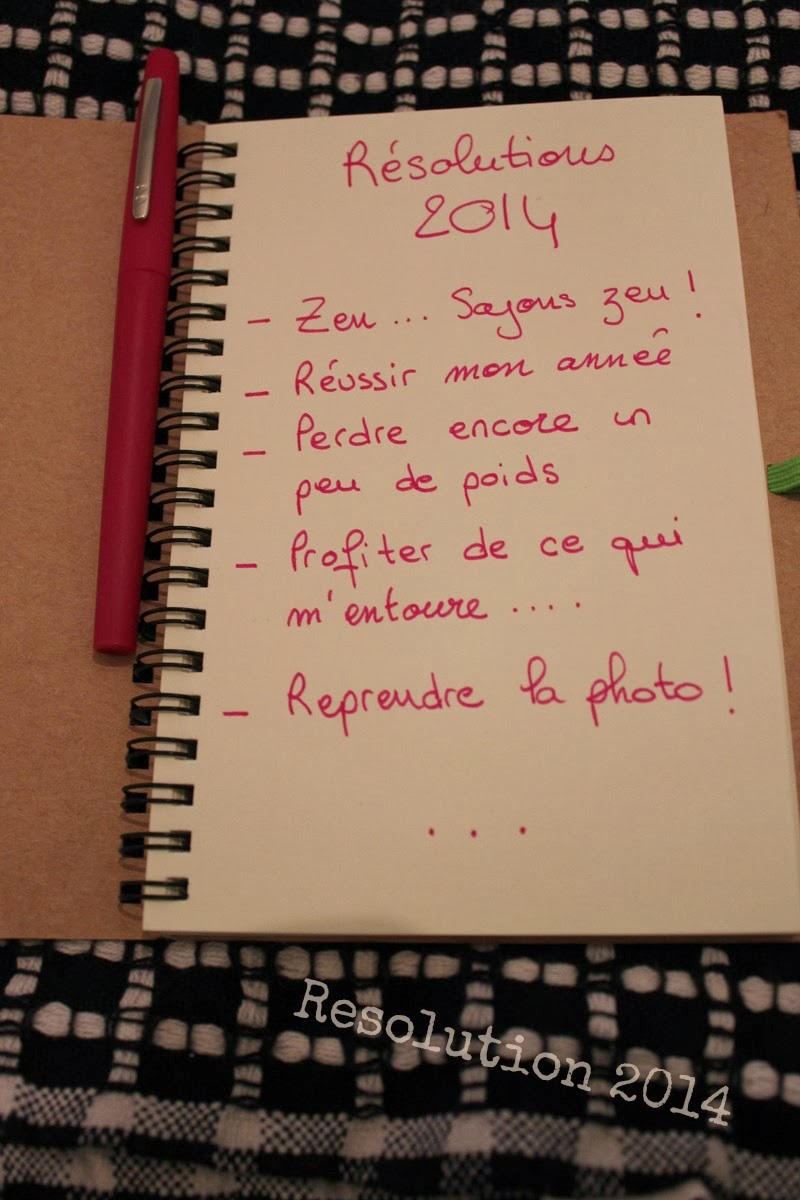 Résolutions
2014
- Zen... Soyons zen !
- Réussir mon année
- Perdre encore un
peu de poids
- Profiter de ce qui
m'entoure ....
- Reprendre la photo !
...
Resolution 2014